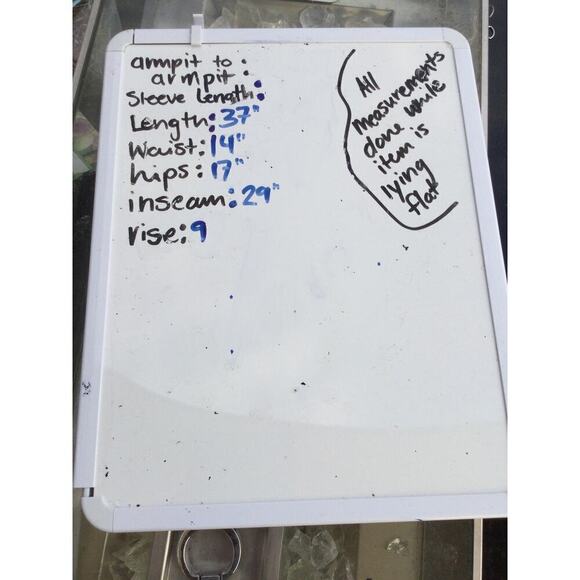 armpit to :
armpit :
Sleeve Length:
Length: 37"
Waist: 14"
hips: 17"
inseam: 29"
rise: 9
All
measurements
done while
item is
lying
flat